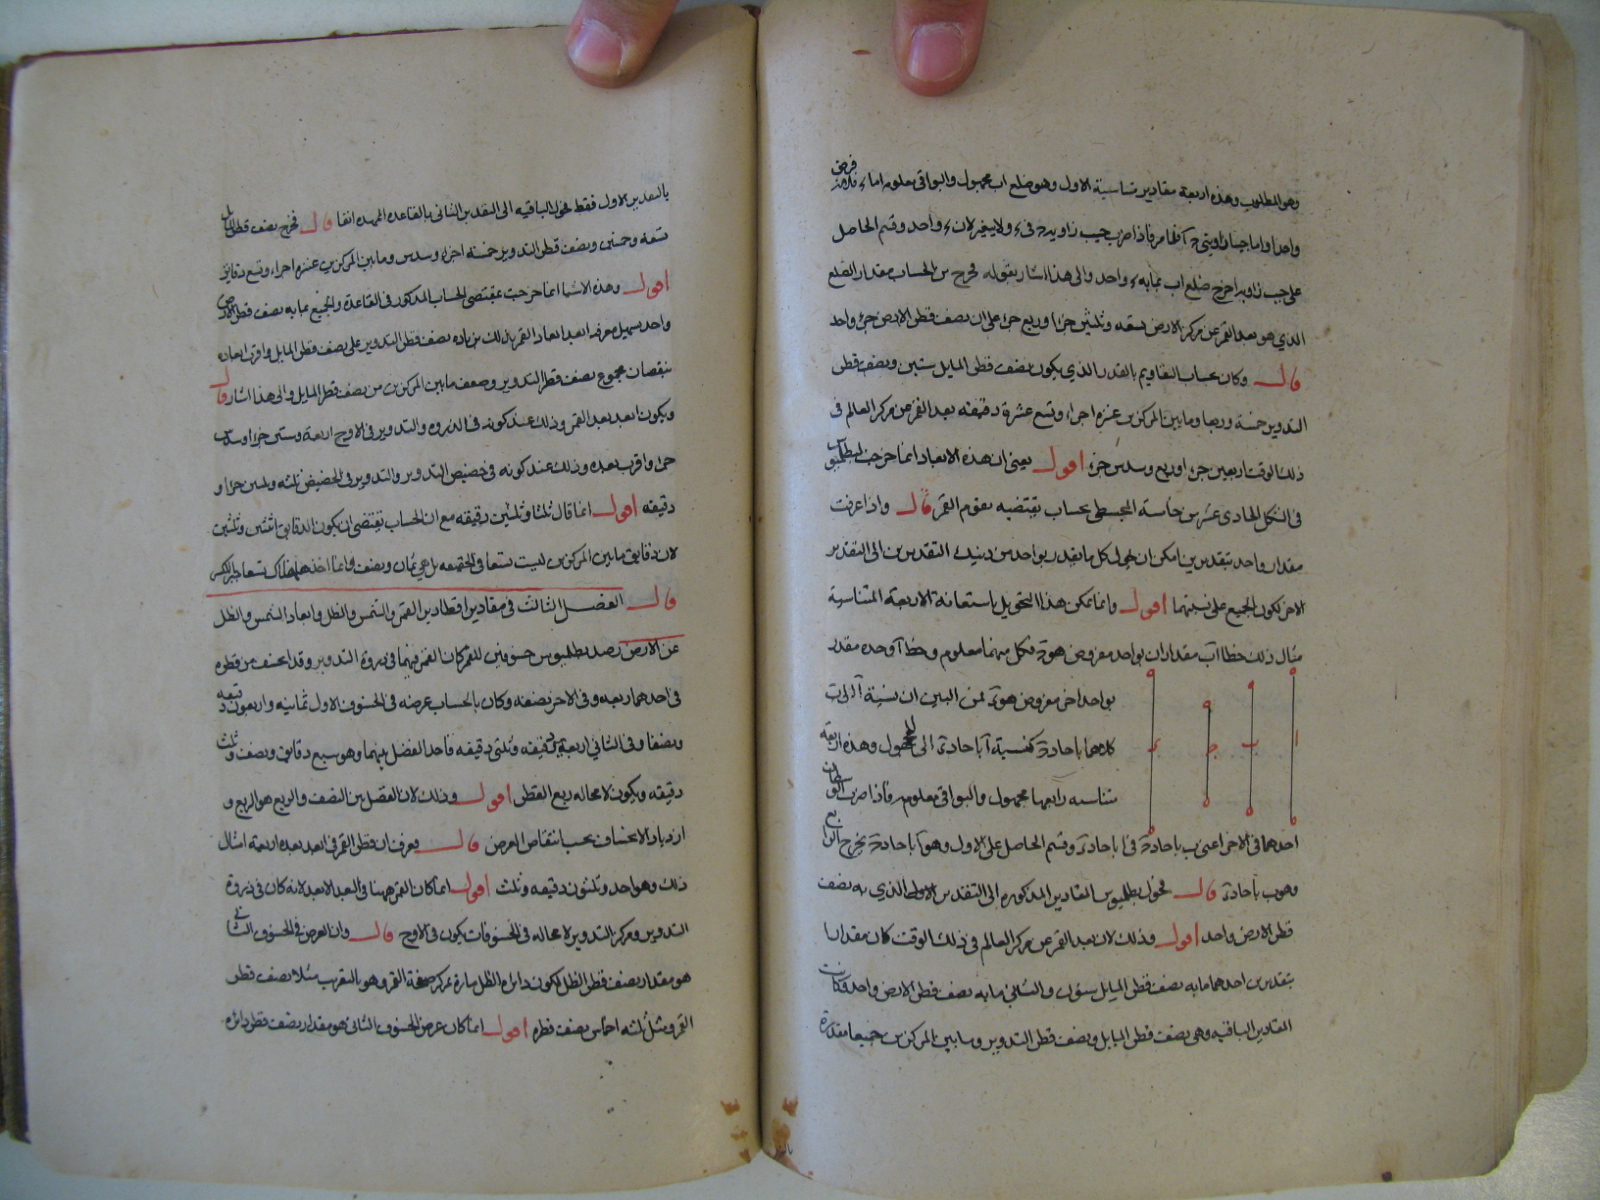 وهو المطلوب وهذه اربعة مقادير متناسبة الاول وهو ضلع اب مجهول والبواقى معلوم اما ء فلانه فرض
واحدا واما جيبا زاويتى فاذا ضرب جيب زاوية ء فى ء ولا يتغير لان ء واحد وقسم الحاصل
على جيب زاوية اخرج ضلع اب بمابه ء واحد والى هذا اشار بقوله فخرج من الحساب مقدار الضلع
الذى هو بعد القمر عن مركز الارض تسعة وثلثين جزءا وربع جزء على ان نصف قطر الارض جزء واحد
قال وكان بحساب التقاويم بالقدر الذى يكون نصف قطر المايل ستين ونصف قطر
التدوير خمسة وربعا وما بين المركزين عشرة اجزاء وتسع عشرة دقيقة بعد القمر عن مركز العالم فى
ذلك الوقت اربعين جزءا وربع وسدس جزء اقول يعنى ان هذه الابعاد انما خرجت لبطلميوس
فى الشكل الحادى عشر من خامسة المجسطى بحساب يقتضيه تقويم القمر قال واذا عرفت
مقدار واحد بتقديرين امكن ان يحول كل ما يقدر بواحد من دينك التقديرين الى التقدير
الاخر لكون الجميع على نسبتهما اقول وانما يمكن هذا التحويل باستعانة الاربعة المتناسبة
مثال ذلك خطا اب مقداران بواحد مفروض هو ة فكل منهما معلوم وخط ا وحده مقدر
بواحد اخر مفروض هو ز فمن البين ان نسبة آ الى ب
كلاهما باحاد ة كنسبة آ باحاد ز الى المجهول وهذه اربعة
متناسبه رابعها مجهول والبواقى معلوم فاذا ضرب الوسطان
احدهما فى الاخر اعنى ب باحاد ة فى ا باحاد ز وقسم الحاصل على الاول وهو آ باحاد ة يخرج الرابع
وهو ب باحاد ز قال فحول بطلميوس المقادير المذكوره الى التقدير الاول الذى به نصف
قطر الارض واحد اقول وذلك لان بعد القمر عن مركز العالم فى ذلك الوقت كان مقدارا
بتقديرين احدهما ما به نصف قطر المايل ستون والثانى ما به نصف قطر الارض واحد وكانت
المقادير الباقيه وهى نصف قطر المايل ونصف قطر التدوير وما بين المركزين جميعا مقدرة
ا ب ج ء
بالتقدير الاول فقط فحول الباقيه الى التقدير الثانى بالقاعدة الممهده انفا قال فخرج نصف قطر المايل
تسعه وخمسين ونصف قطر التدوير خمسة اجزاء وسدس وما بين المركزين عشرة اجزاء وتسع دقايق
اقول وهذه الاشيا انما خرجت بمقتضى الحساب المذكور فى القاعدة والجميع بمابه نصف قطر الارض
واحد يسهل معرفة ابعد ابعاد القمر بذلك من زياده نصف قطر التدوير على نصف قطر المايل واقرب ابعاده
بنقصان مجموع نصف قطر التدوير وضعف ما بين المركزين من نصف قطر المايل والى هذا اشار قال
ويكون ابعد بعد القمر وذلك عند كونه فى الذروه والتدوير فى الاوج اربعة وستين جزءا وسدس
جزء واقرب بعده وذلك عند كونه فى حضيض التدوير والتدوير فى الحضيض ثلثه وثلثين جزءا و
دقيقه اقول انما قال ثلثا وثلثين دقيقه مع ان الحساب يقتضى ان يكون الدقايق اثنتين وثلثين
لان دقايق ما بين المركزين ليست تسعا فى الحقيقه بل هى ثمان ونصف وانما اخذها هناك تسعا جبرا للكسر
قال الفصل الثالث فى مقادير اقطار القمر والشمس والظل وابعاد الشمس والظل
عن الارض رصد بطلميوس خسوفين للقمر كان القمر فيهما فى ذروة التدوير وقد انخسف من قطره
فى احدهما ربعه وفى الاخر نصفه وكان بالحساب عرضه فى الخسوف الاول ثمانيه واربعون دقيقه
ونصفا وفى الثانى اربعين دقيقه وثلثى دقيقه فاخذ الفضل بينهما وهو سبع دقايق ونصف وثلث
دقيقه ويكون لا محاله ربع القطر اقول وذلك لان الفضل بين النصف والربع هو الربع و
ازدياد الانخساف بحسب انتقاص العرض قال فعرف ان قطر القمر فى ابعد بعده اربعة امثال
ذلك وهو احد وثلثون دقيقه وثلث اقول انما كان القمر ههنا فى البعد الابعد لانه كان فى ذروة
التدوير ومركز التدوير لا محاله فى الخسوفات يكون فى الاوج قال وان العرض فى الخسوف الثانى
هو مقدار نصف قطر الظل لكون دائره الظل مارة بمركز صفحة القمر وهو بالتقريب مثلا نصف قطر
القمر ومثل ثلثه اخماس نصف قطره اقول انما كان عرض الخسوف الثانى هو مقدار نصف قطر دائره